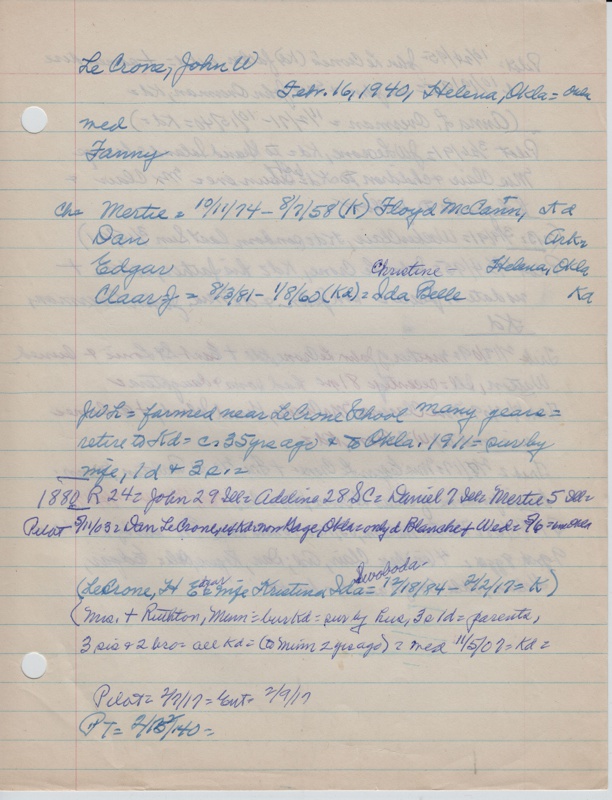 Le Crone, John W
Febr. 16, 1940, Helena, Okla = Okla
med
Fanny
Ch = Mertie = 10/11/74 - 8/7/58 (K) Floyd McCann, Kd
Dan Ark
Edgar Helena, Okla
Christine -
Claar J = 8/3/81 - 1/8/60 (Kd) = Ida Belle Ka
JWL = farmed near LeCrone School many years =
retire to Kd = c. 35 yrs ago & to Okla. 1911 = surv by
wife, 1 d & 3 s. =
1880 R 24 = John 29 Ill = Adeline 28 SC = Daniel 7 Ill = Mertie 5 Ill =
Pilot 5/11/03 = Dan LeCrone, Kd now Gage, Okla = only d Blanche + Wed = 5/6 =
Swoboda -
(LeCrone, H Edgar wife Kristina Ida = 12/18/84 - 2/2/17 = K)
(Mrs. + Ruthton, Minn = bur Kd = sur by hus, 3 s 1 d = parents,
3 sis & 2 bro = all Kd = (to Minn 2 yrs ago) = med 11/5/07 = Kd =
Pilot = 2/7/17 = Ent = 2/9/17
PT = 2/ /40 =